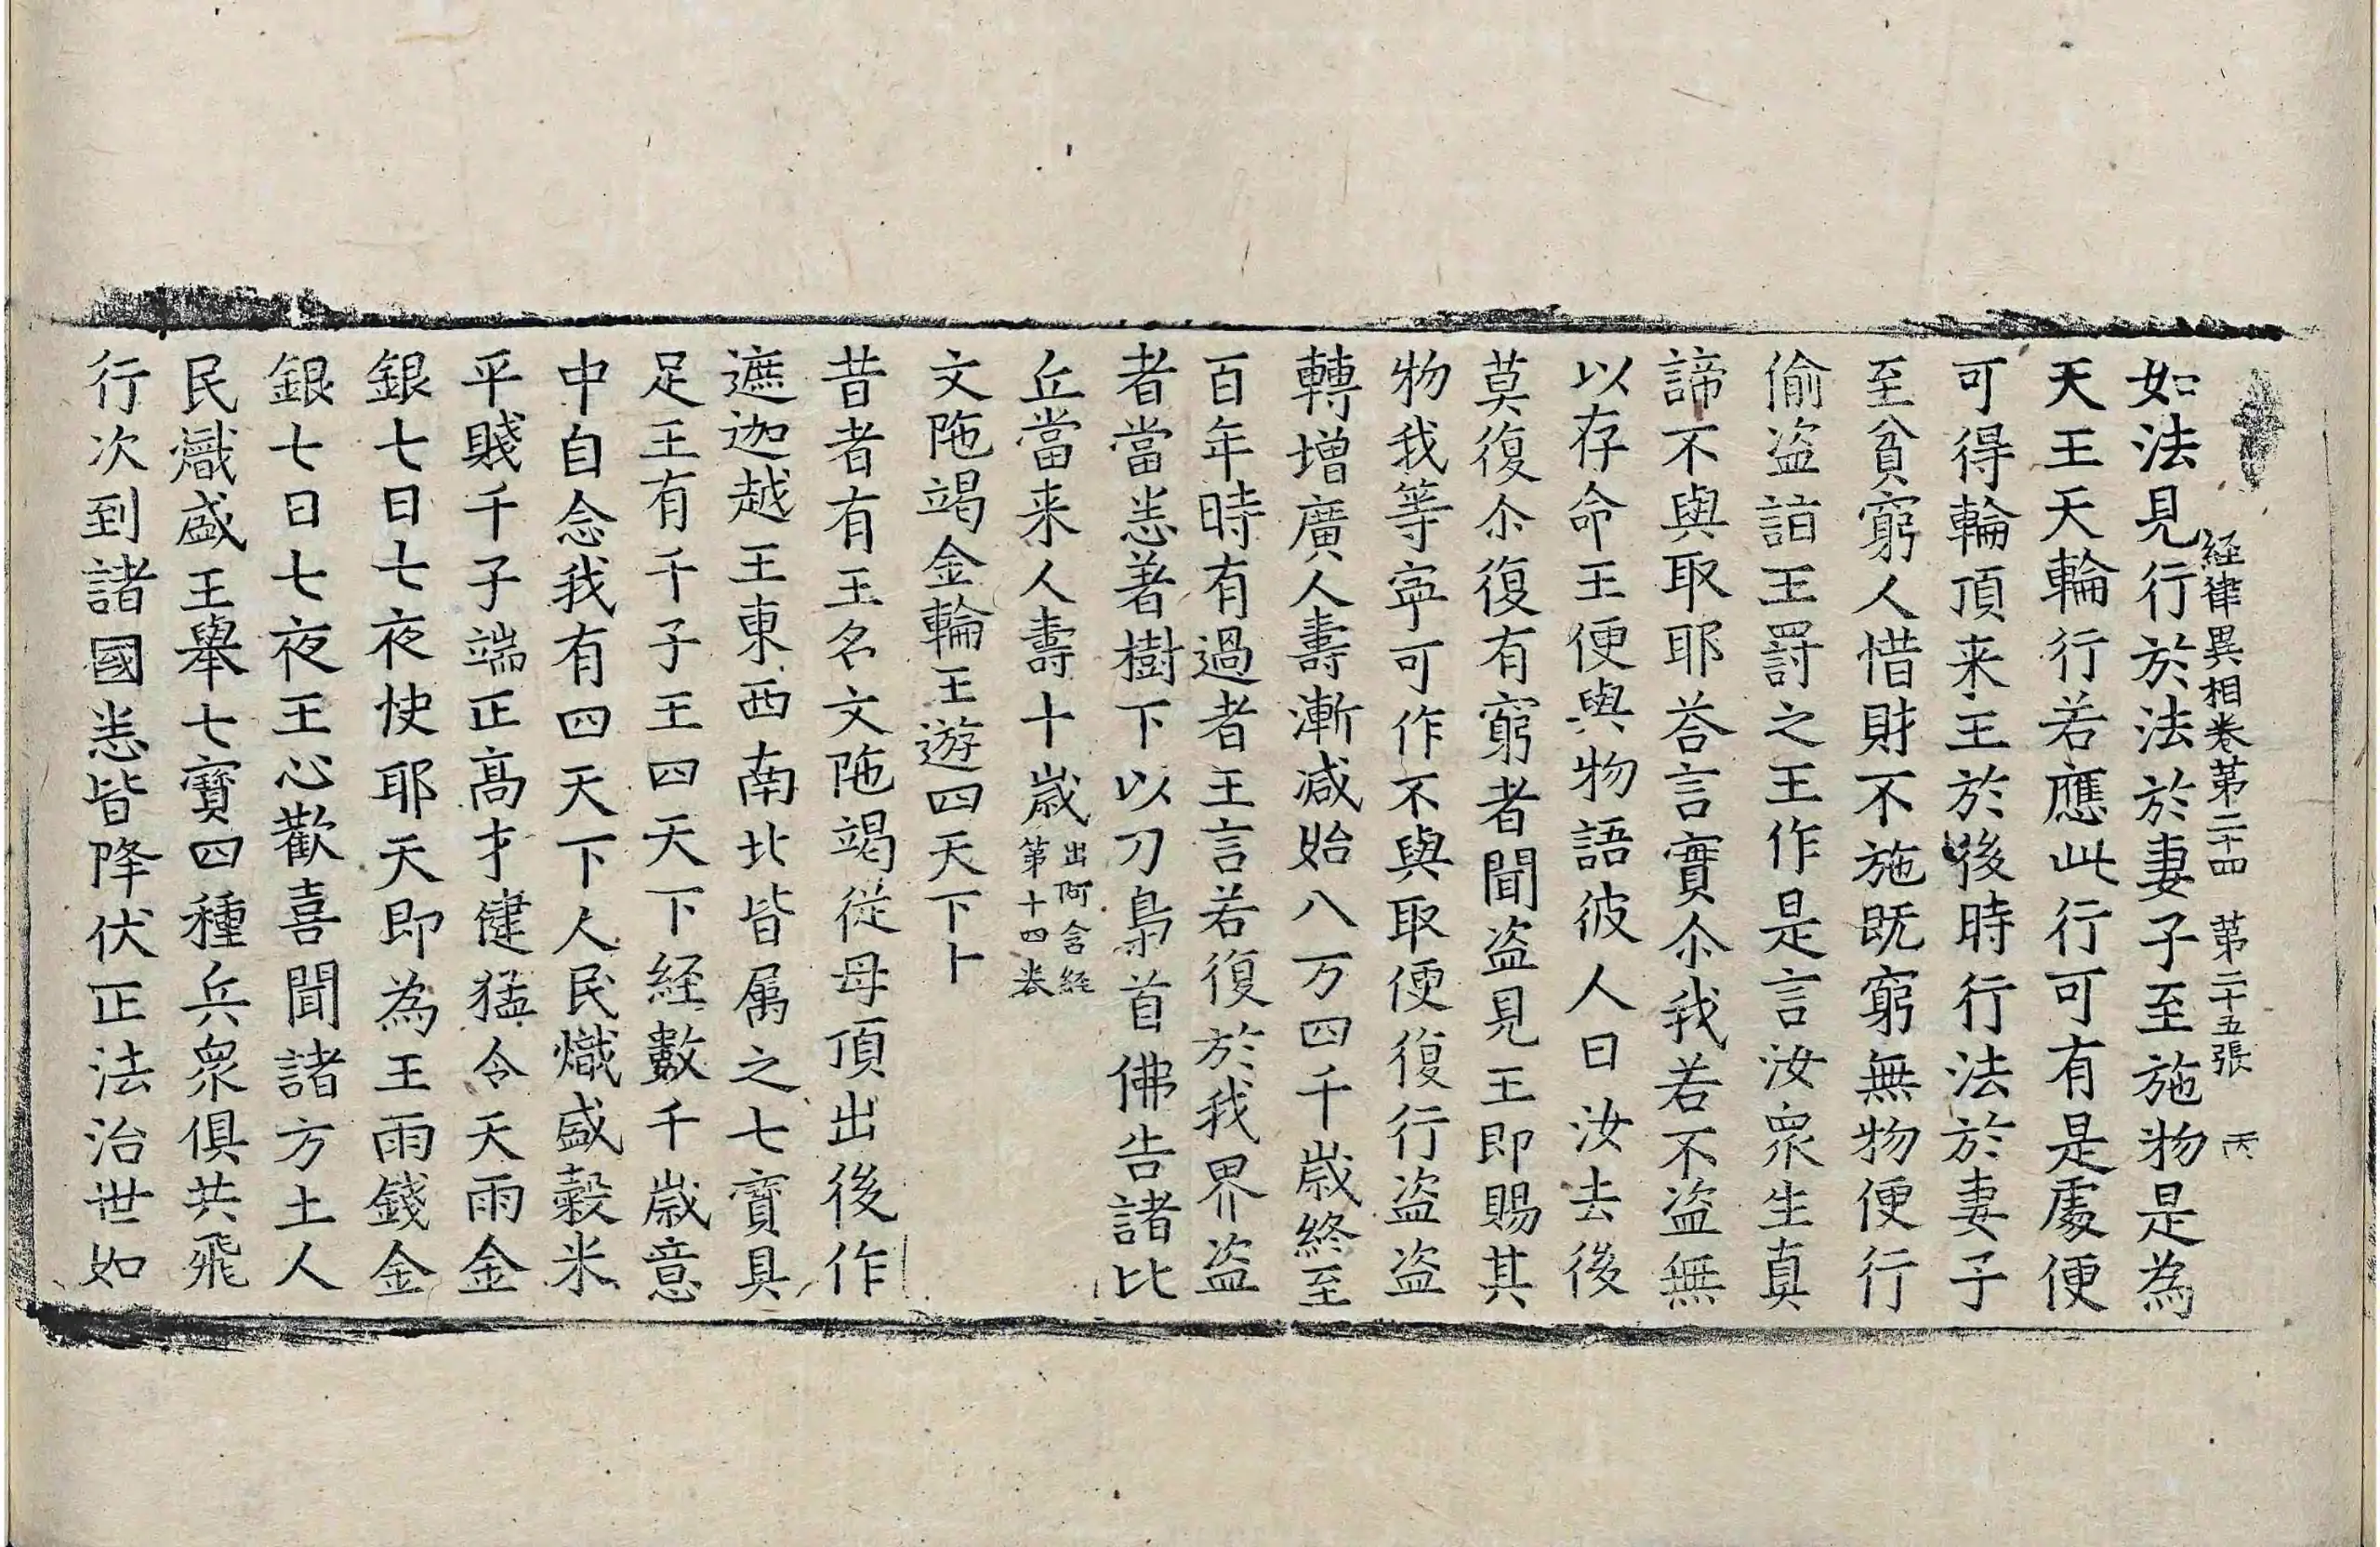 経律異相卷第二十四 第二十五張 丙
如法見行於法於妻子至施物是為
天王天輪行若應此行可有是處便
可得輪頂来王於後時行法於妻子
至貧窮人惜財不施既窮無物便行
偷盗詣王罸之王作是言汝衆生真
諦不與取耶荅言實尒我若不盗無
以存命王便與物語彼人曰汝去後
莫復尒復有窮者聞盗見王即賜其
物我等寜可作不與取便復行盗盗
轉增廣人壽漸减始八万四千歳終至
百年時有過者王言若復於我界盗
者當悉著樹下以刀梟首佛告諸比
丘當来人壽十歳出阿含経第十四卷
文陁竭金輪王遊四天下卜
昔者有王名文陁竭從母頂出後作
遮迦越王東西南北皆属之七寳具
足王有千子王四天下経數千歳意
中自念我有四天下人民熾盛穀米
平賤千子端正高才健猛令天雨金
銀七日七夜快耶天即為王雨錢金
銀七日七夜王心歡喜聞諸方土人
民熾盛王舉七寳四種兵衆俱共飛
行次到諸國悉皆降伏正法治世如